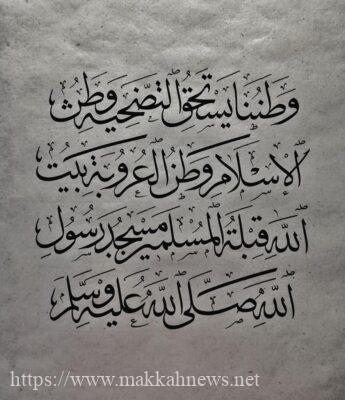 وَطَنُنَا يَسْتَحِقُّ التَّضْحِيَةَ وَطَنُ
الْإِسْلَامِ وَطَنُ الْعُرُوبَةِ بَيْتُ
اللَّهِ قِبْلَةُ الْمُسْلِمِينَ مَسْجِدُ رَسُولِ
اللَّهِ صَلَّى اللَّهُ عَلَيْهِ وَسَلَّمَ
https://www.makkahnews.net